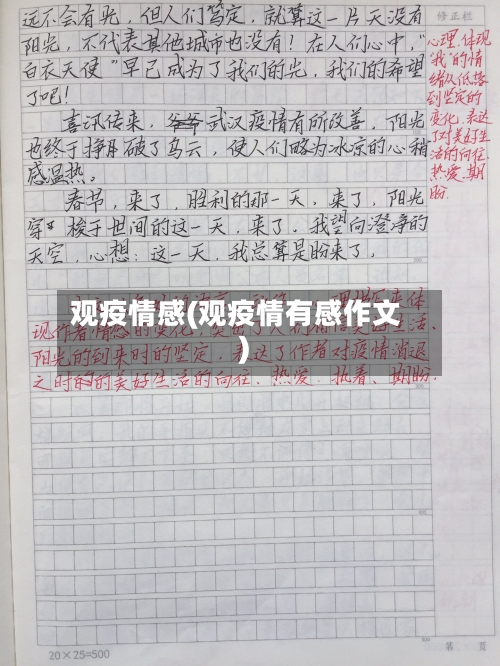 远不会有光，但人们笃定，就算这一片天没有
阳光，不代表其他城市也没有！在人们心中，“
白衣天使”早已成为了我们的光，我们的希望
了吧！
喜讯传来，爷爷武汉疫情有所改善，阳光
也终于挣月破了乌云，使人们略为冰凉的心稍
感温热。
春节，来了，胜利的那一天，来了，阳光
穿梭于世间的这一天，来了。我望向澄净的
天空，心想：这一天，我总算是盼来了，
修正栏
心理，体现
“我”的情
绪从低落
到坚定的
变化，表达
了对美好生
活的向往、
热爱、期
盼.
观疫情感(观疫情有感作文
)
现作者情感的变化
阳光的到来时的坚定，表达了作者对疫情消退
之时的的美好生活的向往、热爱、执着、期盼.
20×25=500
第 页